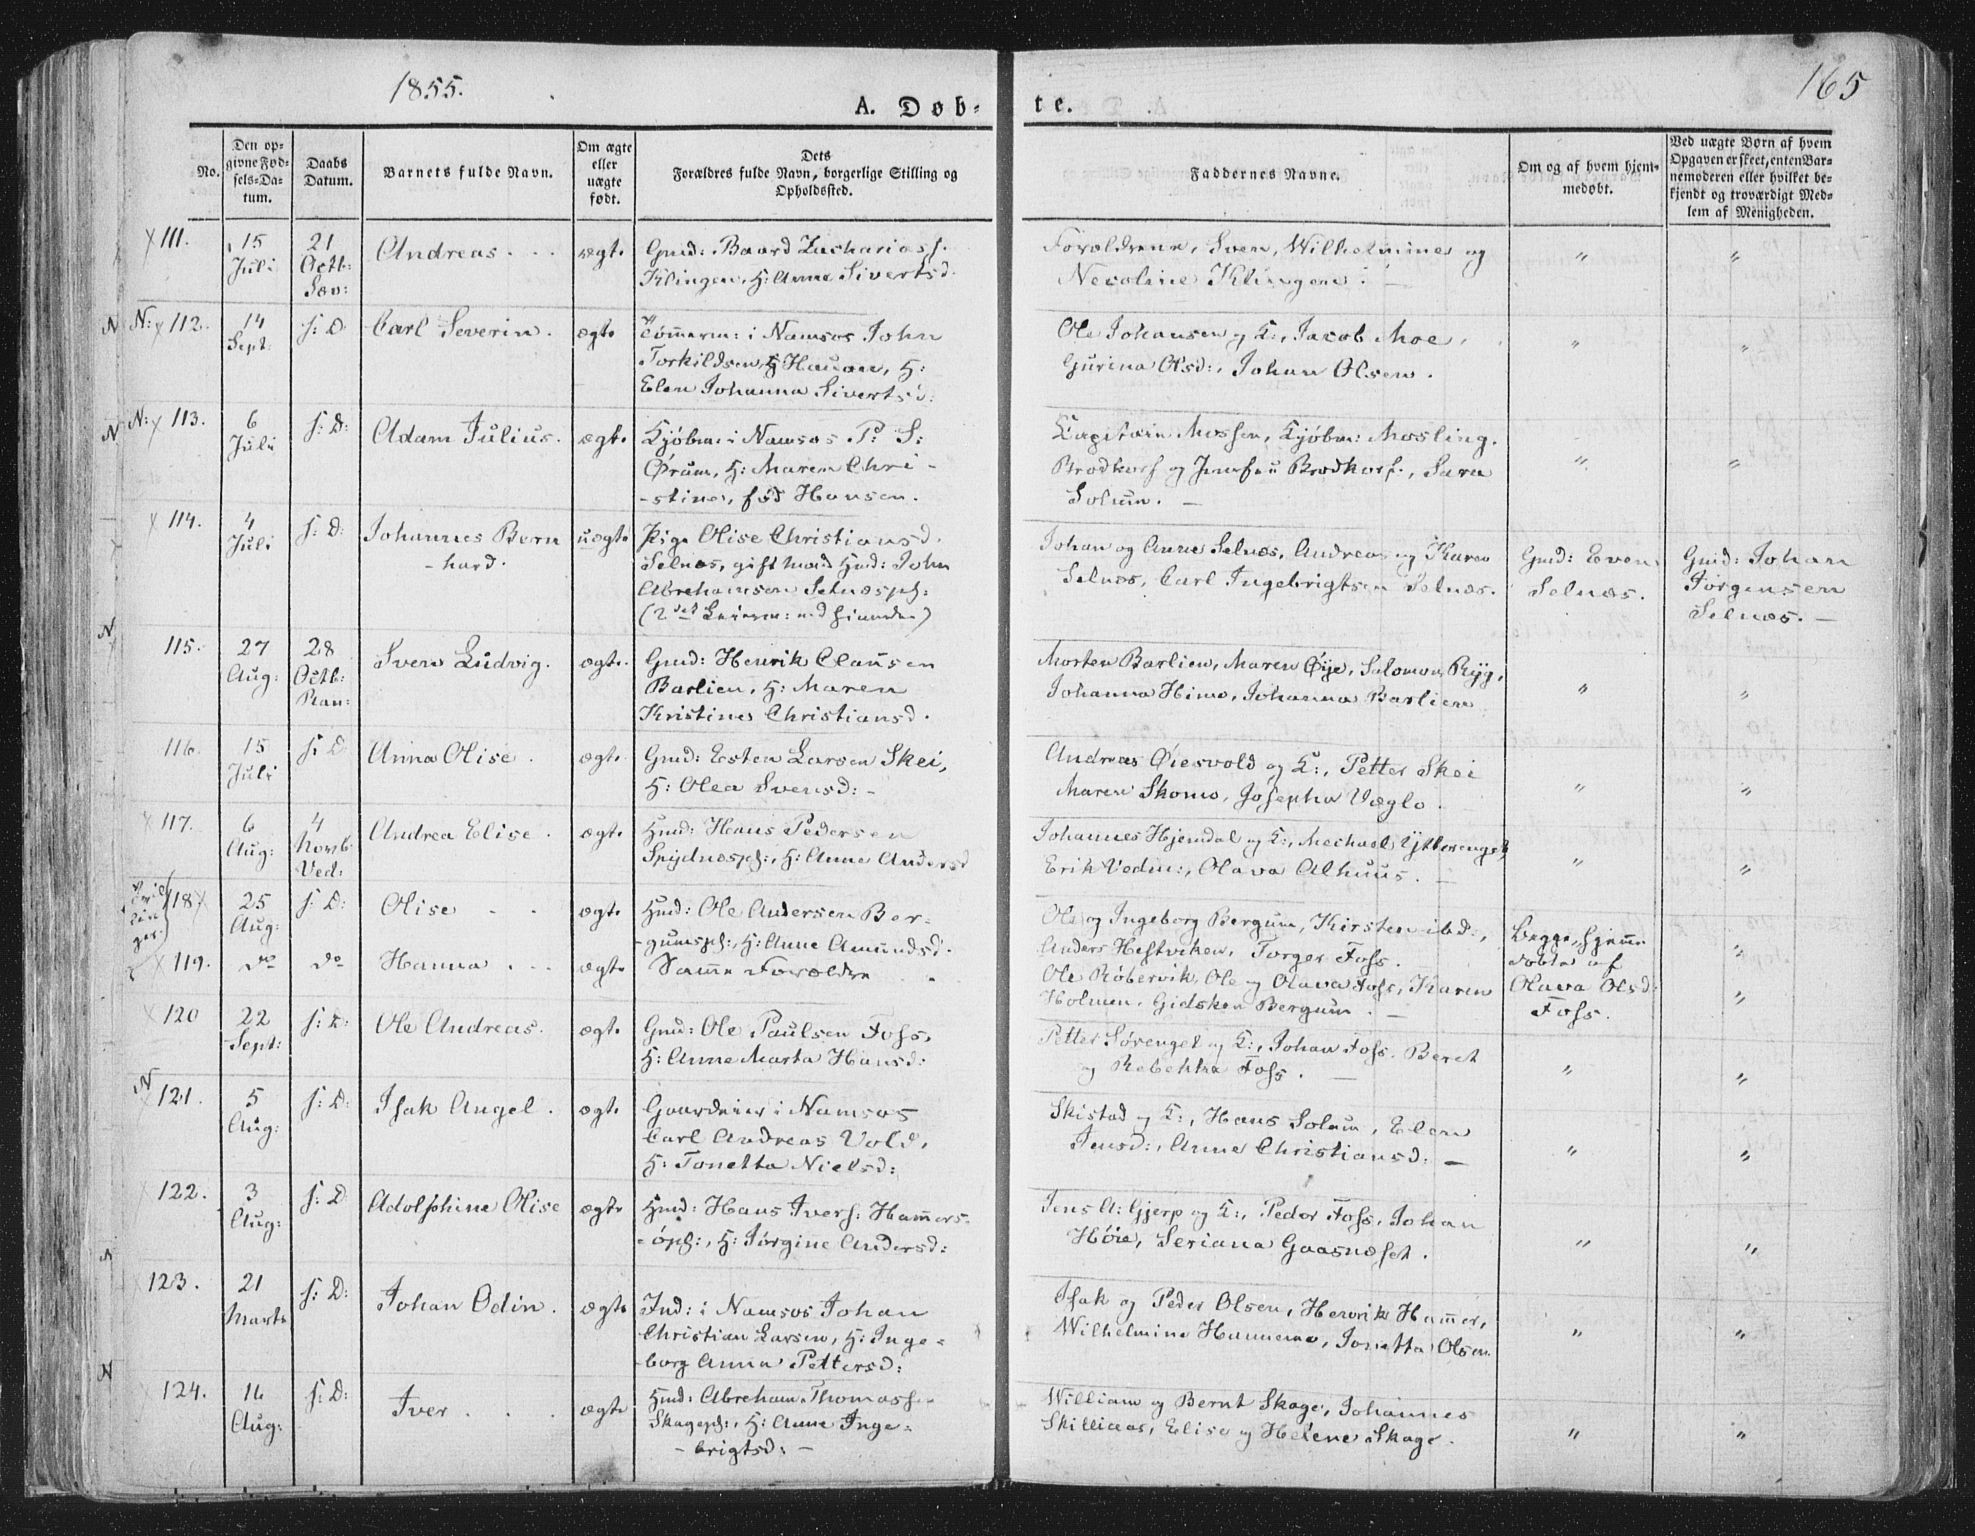 1855.
165
A. Døb-
te.
No.
Den op-
givne Fød-
sels-Da-
tum.
Daabs
Datum.
Barnets fulde Navn.
Om ægte
eller
uægte
født.
Dets
Forældres fulde Navn, borgerlige Stilling og
Opholdssted.
Faddernes Navne.
Om og af hvem hjem-
medøbt.
Ved uægte Børn af hvem
Opgaven er skeet, enten Bar-
nemoderen eller hvilket be-
kjendt og troværdigt Med-
lem af Menigheden.
111.
15
Juli
21
Octb:
Sæv:
Andreas
ægte
Gmd: Baard Zachariass.
Klingen, H: Anne Sivertsd.
Forældrene, Sven, Wilhelmine og
Necoline Klingen.
"
"
N N: 112.
14
Sept:
s: D
Carl Severin.
ægte
Tømmerm: i Namsos John
Torkildsen Hauan, H:
Elen Johanna Sivertsd:
Ole Johansen og K:, Jacob Moe,
Gurina Olsd:, Johan Olsen.
"
"
N N: 113.
6
Juli
s: D:
Adam Julius.
ægte
Kjøbm: i Namsos P: S:
Ørum, H: Maren Chri-
-stine, fød Hansen.
Capitain Mossen, Kjøbm: Mosling.
Brodkorf og Jomfru Brodkorf, Sara
Solum. -
"
"
114.
4
Juli
s: D:
Johannes Bern
-hard.
uægte
Pige Olise Christiansd.
Selnæs, gift mand Hmd: John
Abrahamsen Selnæspl:
Johan og Anne Selnæs, Andreas og Karen
Selnæs, Carl Ingebrigtsen Selnæs.
Gmd: Even
Selnæs.
Gmd: Johan
Jörgensen
Selnæs. -
N 115.
27
Aug:
28
Octb:
Ran:
Sven Ludvig.
ægte
Gmd: Henrik Clausen
Barlien, H: Maren
Kristine Christiansd.
Morten Barlien, Maren Øye, Salomon Ryg,
Johanna Himo, Johanna Barlien
"
"
116.
15
Juli
s: D
Anna Olise.
ægte
Gmd: Esten Larsen Skei,
H: Olea Svensd: -
Andreas Øiesvold og K:, Petter Skei
Maren Skomo, Josepha Væglo.
"
"
117.
6
Aug:
4
Novb
Ved:
Andrea Elise.
ægte
Hmd: Hans Pedersen
Spydnæspl:, H: Anne Andersd
Johannes Hjemdal og K:, Mechael Ytterenget,
Erik Vedm:, Olava Alhuus. -
"
"
118
25
Aug:
s: D:
Olise
ægte
Hmd: Ole Andersen Ber-
-gumspl:, H: Anne Amundsd.
Ole og Ingeborg Bergum, Kirsten ibd:,
Anders Heftviken, Torger Foss.
Begge hjemme
døbte af
Olava Olsd:
Foss.
"
119.
do
do
Hanna
ægte
Samme Forældre
Ole Røbervik, Ole og Olava Foss, Karen
Holmen, Gidsken Bergum. -
"
120
22
Sept:
s: D:
Ole Andreas.
ægte
Gmd: Ole Paulsen Foss,
H: Anne Marta Hansd:
Petter Sørenget og K:, Johan Foss, Beret
og Rebekka Foss. -
"
"
N
121.
5
Aug:
s: D:
Isak Angel.
ægte
Gaardeier i Namsos
Carl Andreas Vold,
H: Tonetta Nielsd:
Skistad og K:, Hans Solum, Elen
Jensd:, Anne Christiansd: -
"
"
122.
3
Aug:
s: D
Adolphine Olise
ægte
Hmd: Hans Ivers: Hammers-
-øpl:, H: Jørgine Andersd:
Jens A: Gjerp og K:, Peder Foss, Johan
Høie, Seriana Gaasnæset.
"
"
N
123.
21
Marts
s: D:
Johan Odin.
ægte
Ind: i Namsos Johan
Christian Larsen, H: Inge-
-borg Anna Pettersd:
Isak og Peder Olsen, Henrik Hammer,
Wilhelmine Hammeno, Jonetta Olsen.
"
"
N
124.
16
Aug:
s: D:
Iver
ægte
Hmd: Abraham Thomass.
Skagepl:, H: Anne Inge-
- brigtsd: -
William og Bernt Skage, Johannes
Skilliaas, Elise og Helene Skage.
"
"